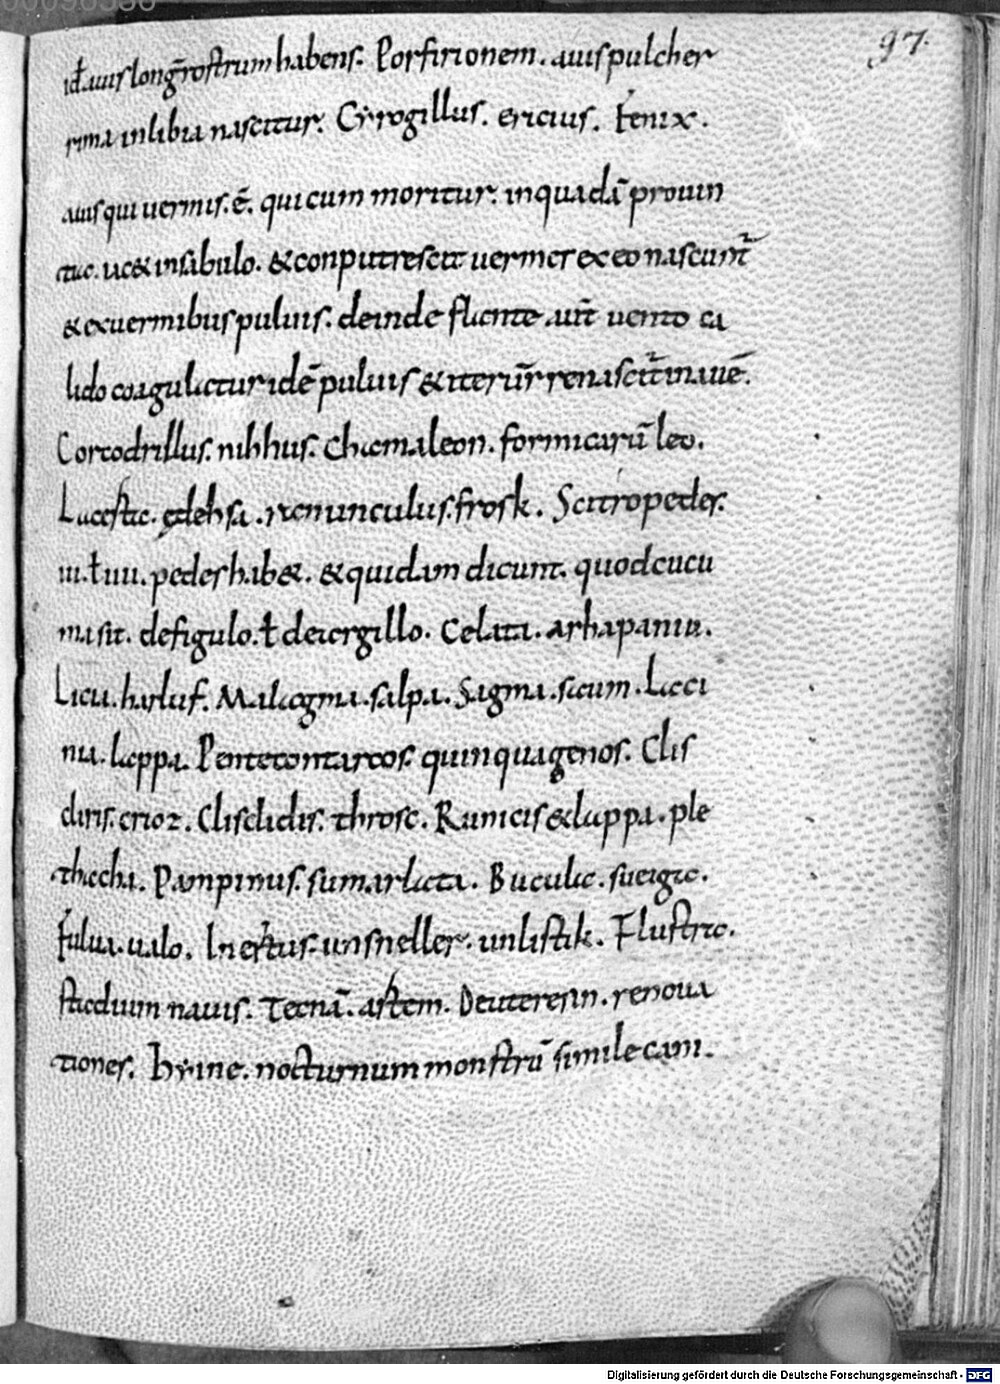 00096536
97.
id ÷ auis long̅ rostrum habens. Porfirionem. auis pulcher
rima in libia nascitur. Cyrogillus. ericius. Fenix.
auis qui uermis. ē. qui cum moritur. in quadā prouin
tiae. uel & in sabulo. & conputrescit uermes ex eo nascunt̃
& ex uermibus puluis. deinde flante aut̃ uento ca
lido coagulatur idē puluis & iterū renascit̃ in auē.
Corcodrillus. nihhus. Chameleon. formicarū leo.
Lacestae. edehsa. renunculus. frosk. Scitropedes.
iii. ł iiii. pedes hab&. & quidam dicunt. quod cucu
ma sit. de figulo. ł de iergillo. Celata. arhapaniu.
Licu. harluf. Malagma. salpa. Sagma. saum. Lacci
nia. lappa. Pentecontarcos. quinquagenos. Clis
diris. crioz. Clisclidis. throsc. Runicis & lappa. ple
thacha. Pampinus. sumarlata. Buculae. sueigrc.
Fulua. ualo. Inertus. unsneller. unlistik. Flustro.
stadium nauis. Tecnā. artem. Deuteresin. renoua
tiones. Hyine. nocturnum monstrū simile cani.
Digitalisierung gefördert durch die Deutsche Forschungsgemeinschaft - DFG